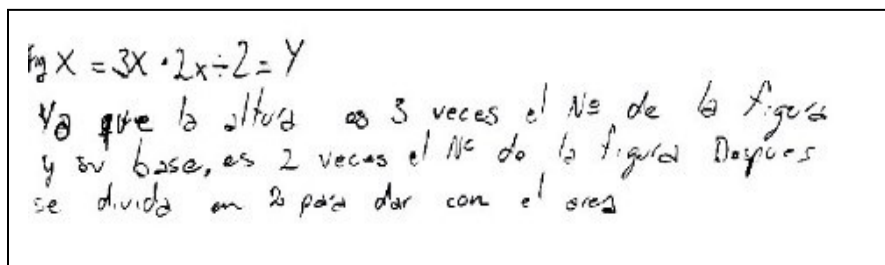 Fig X = 3X · 2x ÷ 2 = Y
Ya que la altura es 3 veces el Nº de la figura
y su base, es 2 veces el Nº de la figura Despues
se divida en 2 para dar con el area